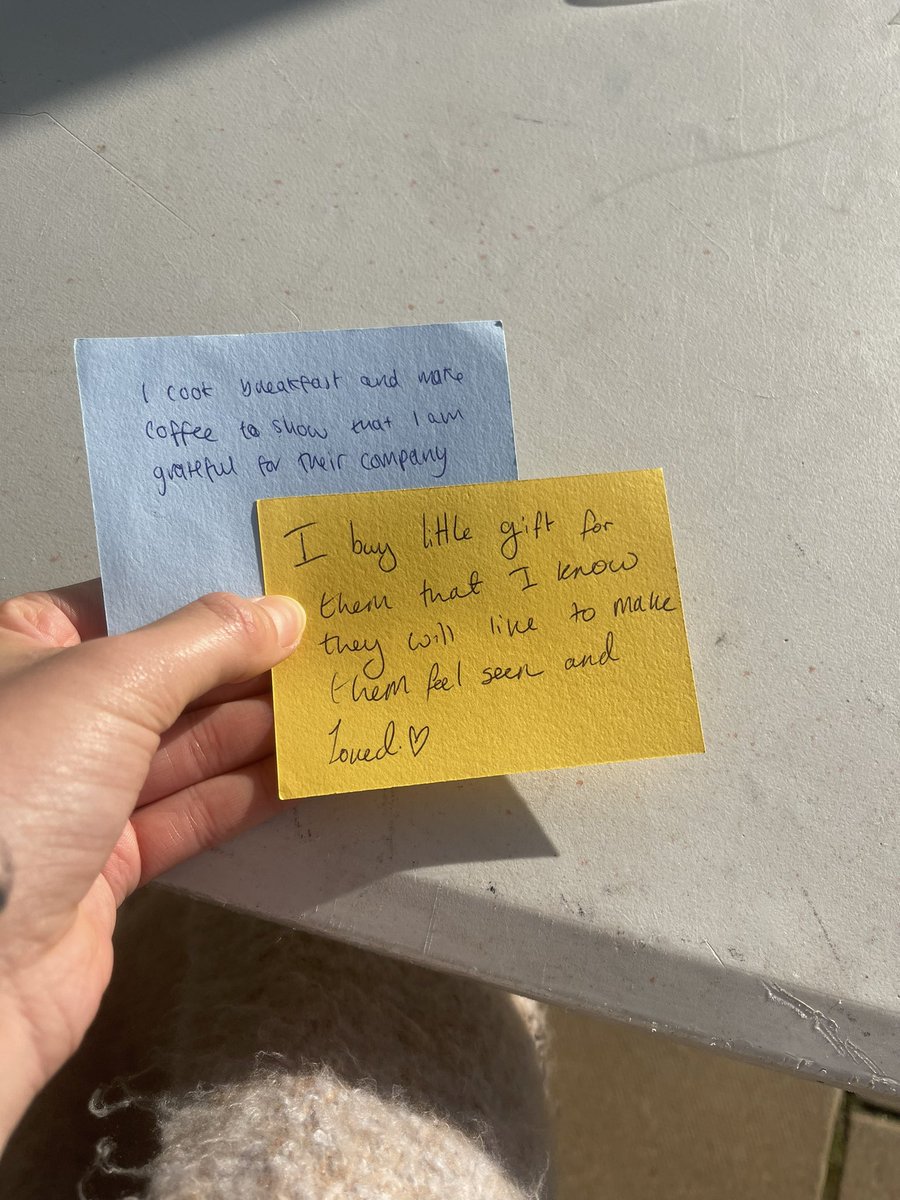 I cook breakfast and make
coffee to show that I am
grateful for their company
I buy little gift for
them that I know
they will like to make
them feel seen and
Loved.♡